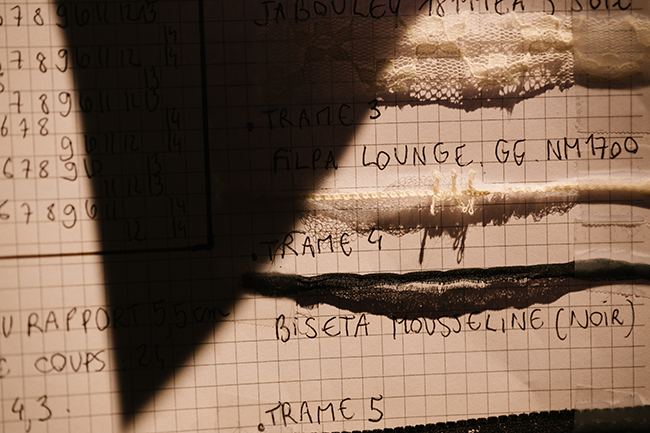 JABOULEY
6 7 8 9 10 11 12 13
14
14
13
7 8 9 10 11 12 13
14
6 7 8
9 10 11 12 14
13
6 7 8 9 10
11 12 13
6 7 8 9 10 11 14
12 14
U RAPPORT 5,5 cm
COUPS 24
4,3.
. TRAME 3
ALPA LOUNGE. GG. NM1700
. TRAME 4
BISETA MOUSSELINE (NOIR)
. TRAME 5